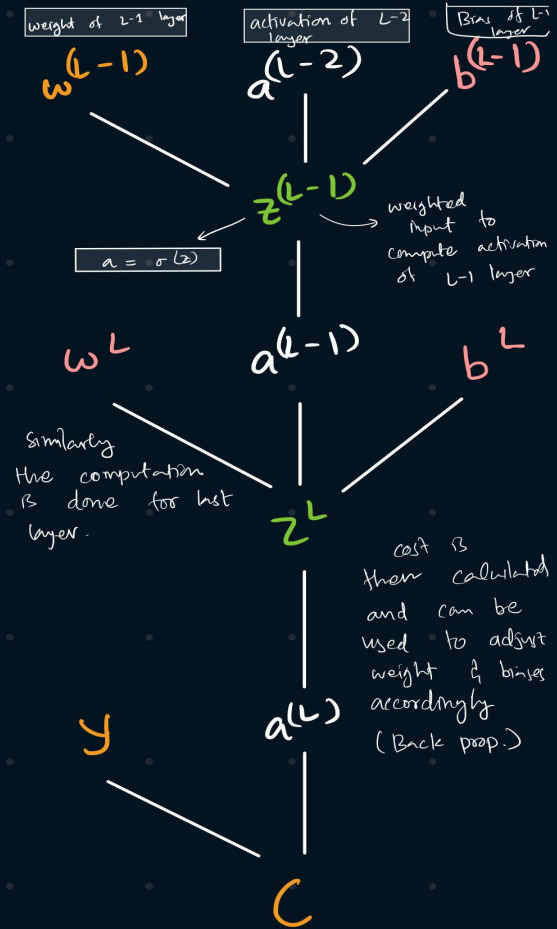 weight of L-1 layer
activation of L-2
layer
Bias of L-1
layer
w^(L-1)
a^(L-2)
b^(L-1)
z^(L-1)
a = σ(z)
weighted
input to
compute activation
of L-1 layer
w^L
a^(L-1)
b^L
similarly
the computation
is done for last
layer.
z^L
cost is
then calculated
and can be
used to adjust
weight & biases
accordingly
(Back prop.)
y
a^(L)
C